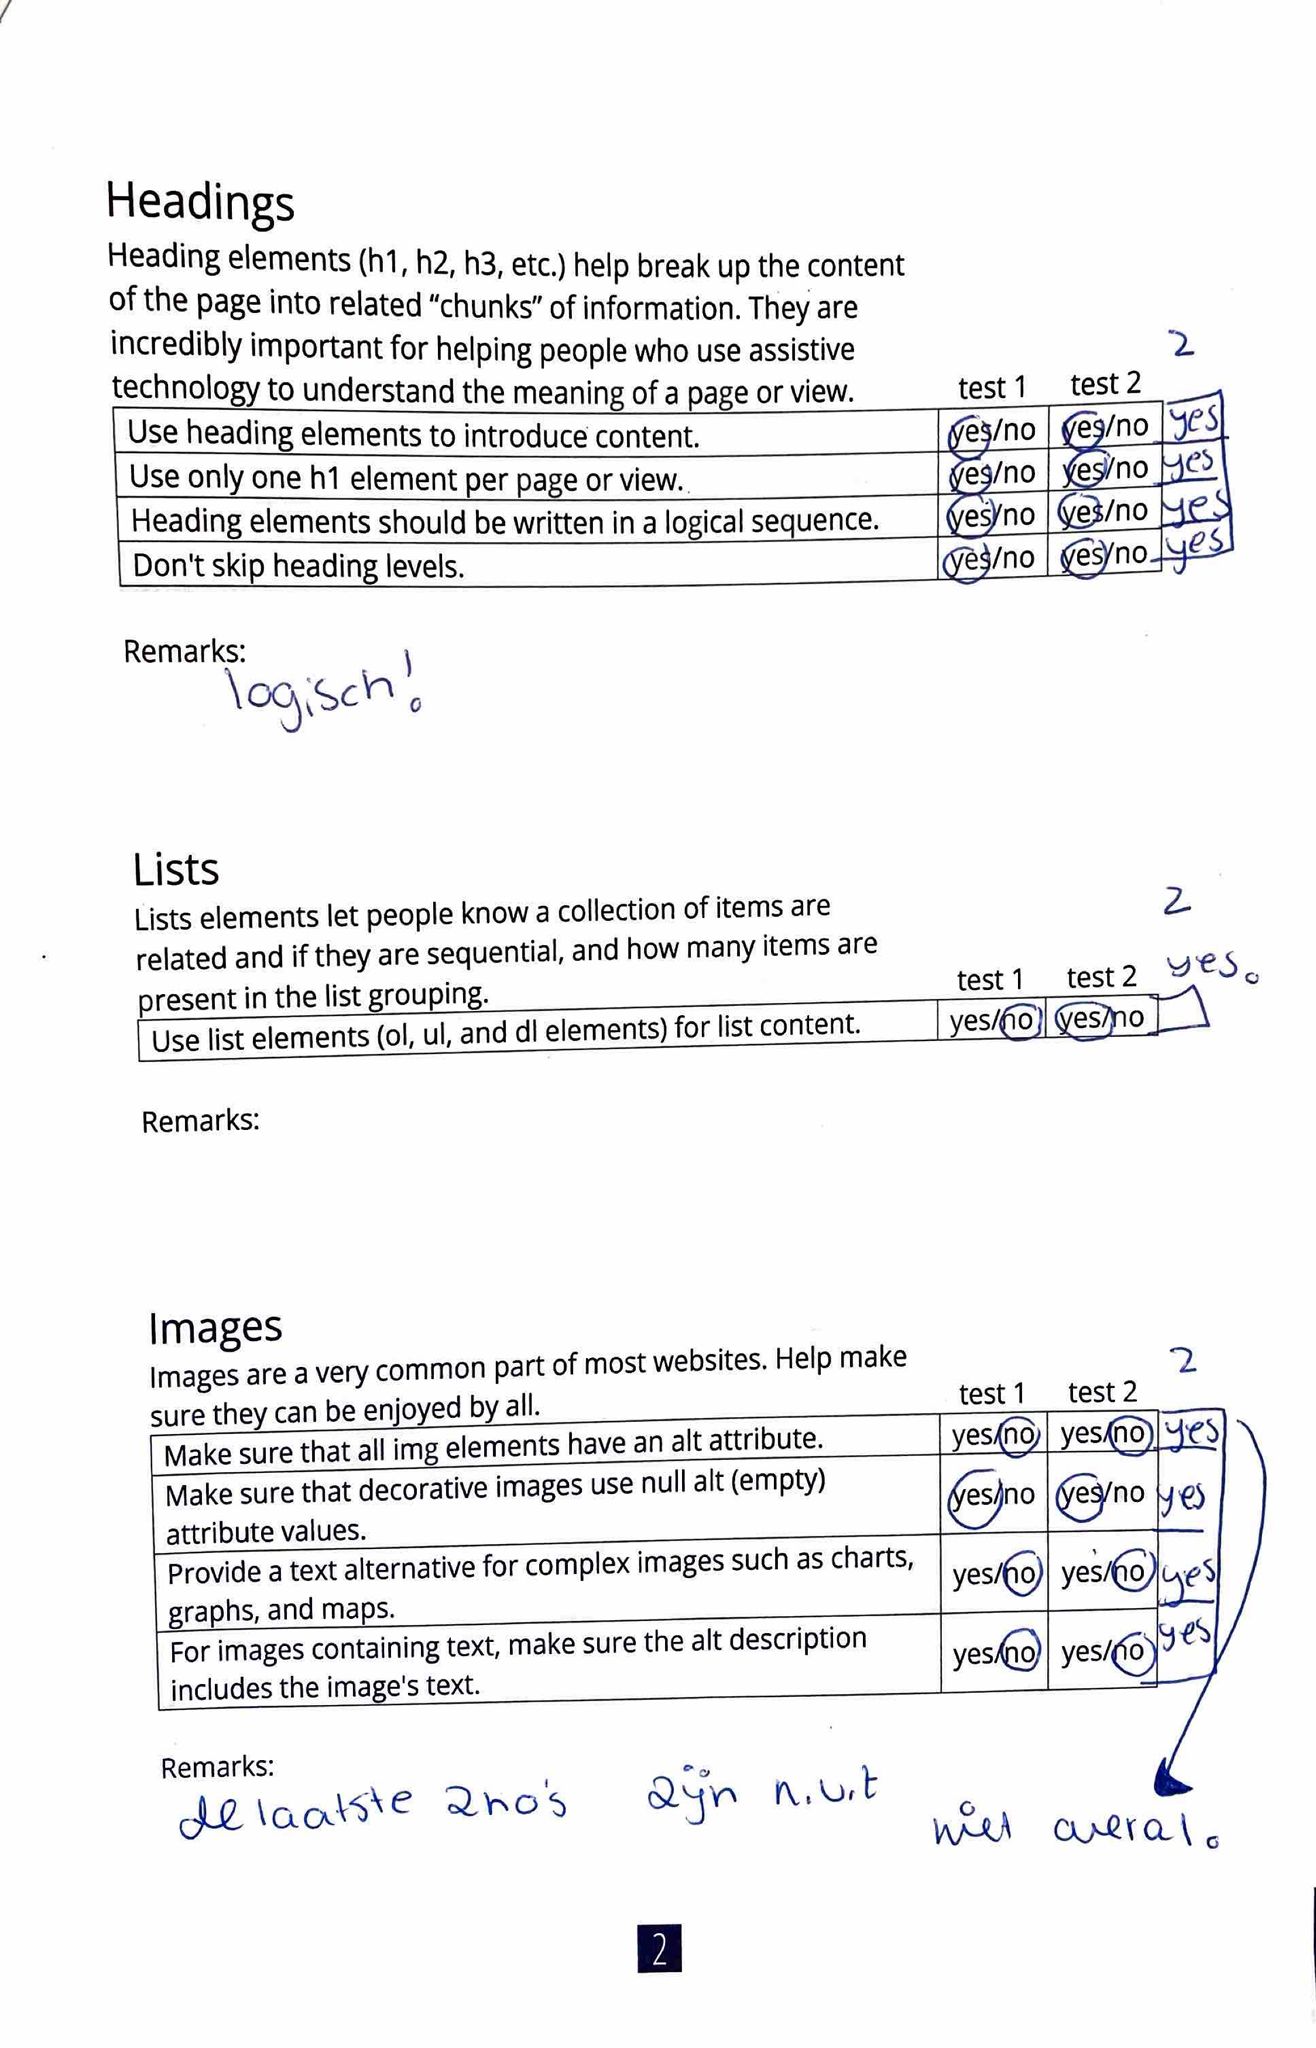 Headings
Heading elements (h1, h2, h3, etc.) help break up the content
of the page into related “chunks” of information. They are
incredibly important for helping people who use assistive 2
technology to understand the meaning of a page or view. test 1 test 2
Use heading elements to introduce content. yes/no yes/no yes
Use only one h1 element per page or view. yes/no yes/no yes
Heading elements should be written in a logical sequence. yes/no yes/no yes
Don't skip heading levels. yes/no yes/no yes
Remarks:
logisch!
Lists
Lists elements let people know a collection of items are 2
related and if they are sequential, and how many items are yes.
present in the list grouping. test 1 test 2
Use list elements (ol, ul, and dl elements) for list content. yes/no yes/no
Remarks:
Images
Images are a very common part of most websites. Help make 2
sure they can be enjoyed by all. test 1 test 2
Make sure that all img elements have an alt attribute. yes/no yes/no yes
Make sure that decorative images use null alt (empty) yes/no yes/no yes
attribute values.
Provide a text alternative for complex images such as charts, yes/no yes/no yes
graphs, and maps.
For images containing text, make sure the alt description yes/no yes/no yes
includes the image's text.
Remarks:
de laatste 2 no's zijn n.v.t
niet overal.
2